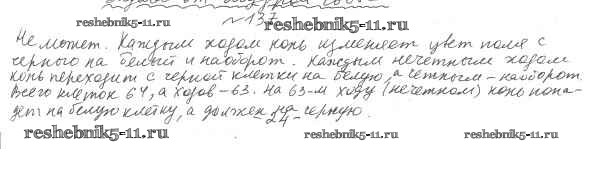 № 137
reshebnik5-11.ru reshebnik5-11.ru
Не может. Каждым ходом конь изменяет цвет поля с
черного на белый и наоборот. Каждым нечетным ходом
конь переходит с черной клетки на белую, а четным – наоборот.
Всего клеток 64, а ходов – 63. На 63-м ходу (нечетном) конь попа-
дет на белую клетку, а должен на черную.
- 24 -
reshebnik5-11.ru reshebnik5-11.ru reshebnik5-11.ru